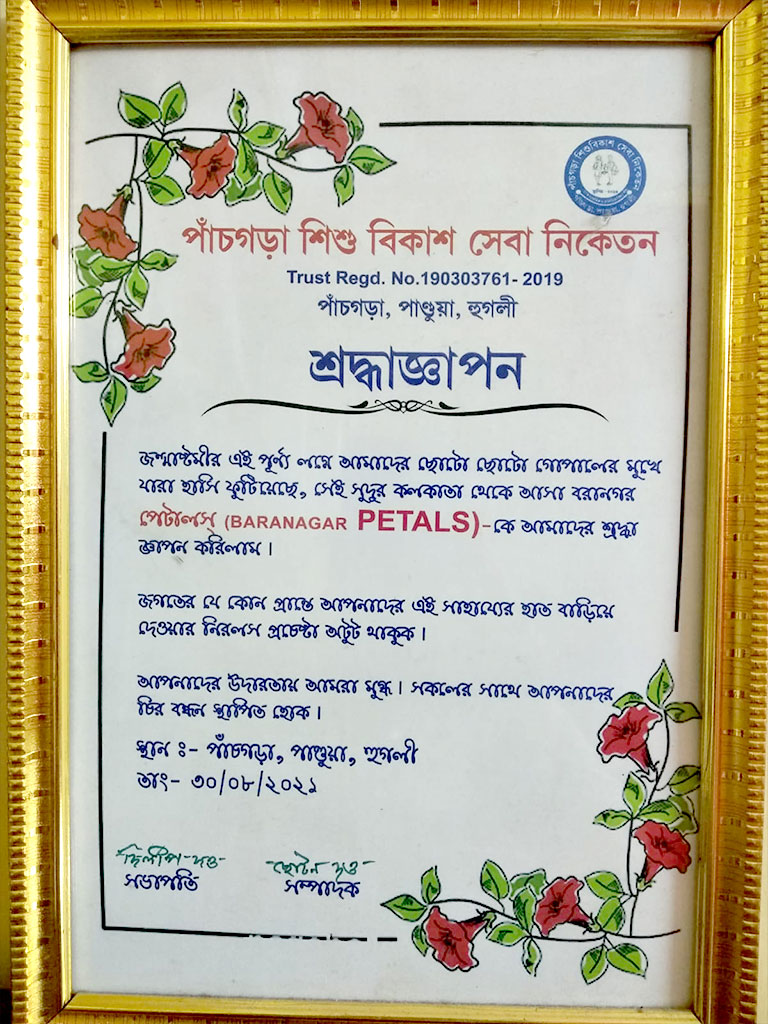 পাঁচগড়া শিশু বিকাশ সেবা নিকেতন
পাঁচগড়া শিশু বিকাশ সেবা নিকেতন
Trust Regd. No.190303761- 2019
পাঁচগড়া, পাণ্ডুয়া, হুগলী
শ্রদ্ধাজ্ঞাপন
জন্মাষ্টমীর এই পূর্ণ্য লগ্নে আমাদের ছোটো ছোটো গোপালের মুখে
যারা হাসি ফুটিয়েছে, সেই সুদূর কলকাতা থেকে আসা বরানগর
পেটালস্ (BARANAGAR PETALS)-কে আমাদের শ্রদ্ধা
জ্ঞাপন করিলাম।
জগতের যে কোন প্রান্তে আপনাদের এই সাহায্যের হাত বাড়িয়ে
দেওয়ার নিরলস প্রচেষ্টা অটুট থাকুক।
আপনাদের উদারতায় আমরা মুগ্ধ। সকলের সাথে আপনাদের
চির বন্ধন স্থাপিত হোক।
স্থান ঃ- পাঁচগড়া, পাণ্ডুয়া, হুগলী
তাং- ৩০/০৮/২০২১
দিলীপ দত্ত ছোটন দত্ত
সভাপতি সম্পাদক